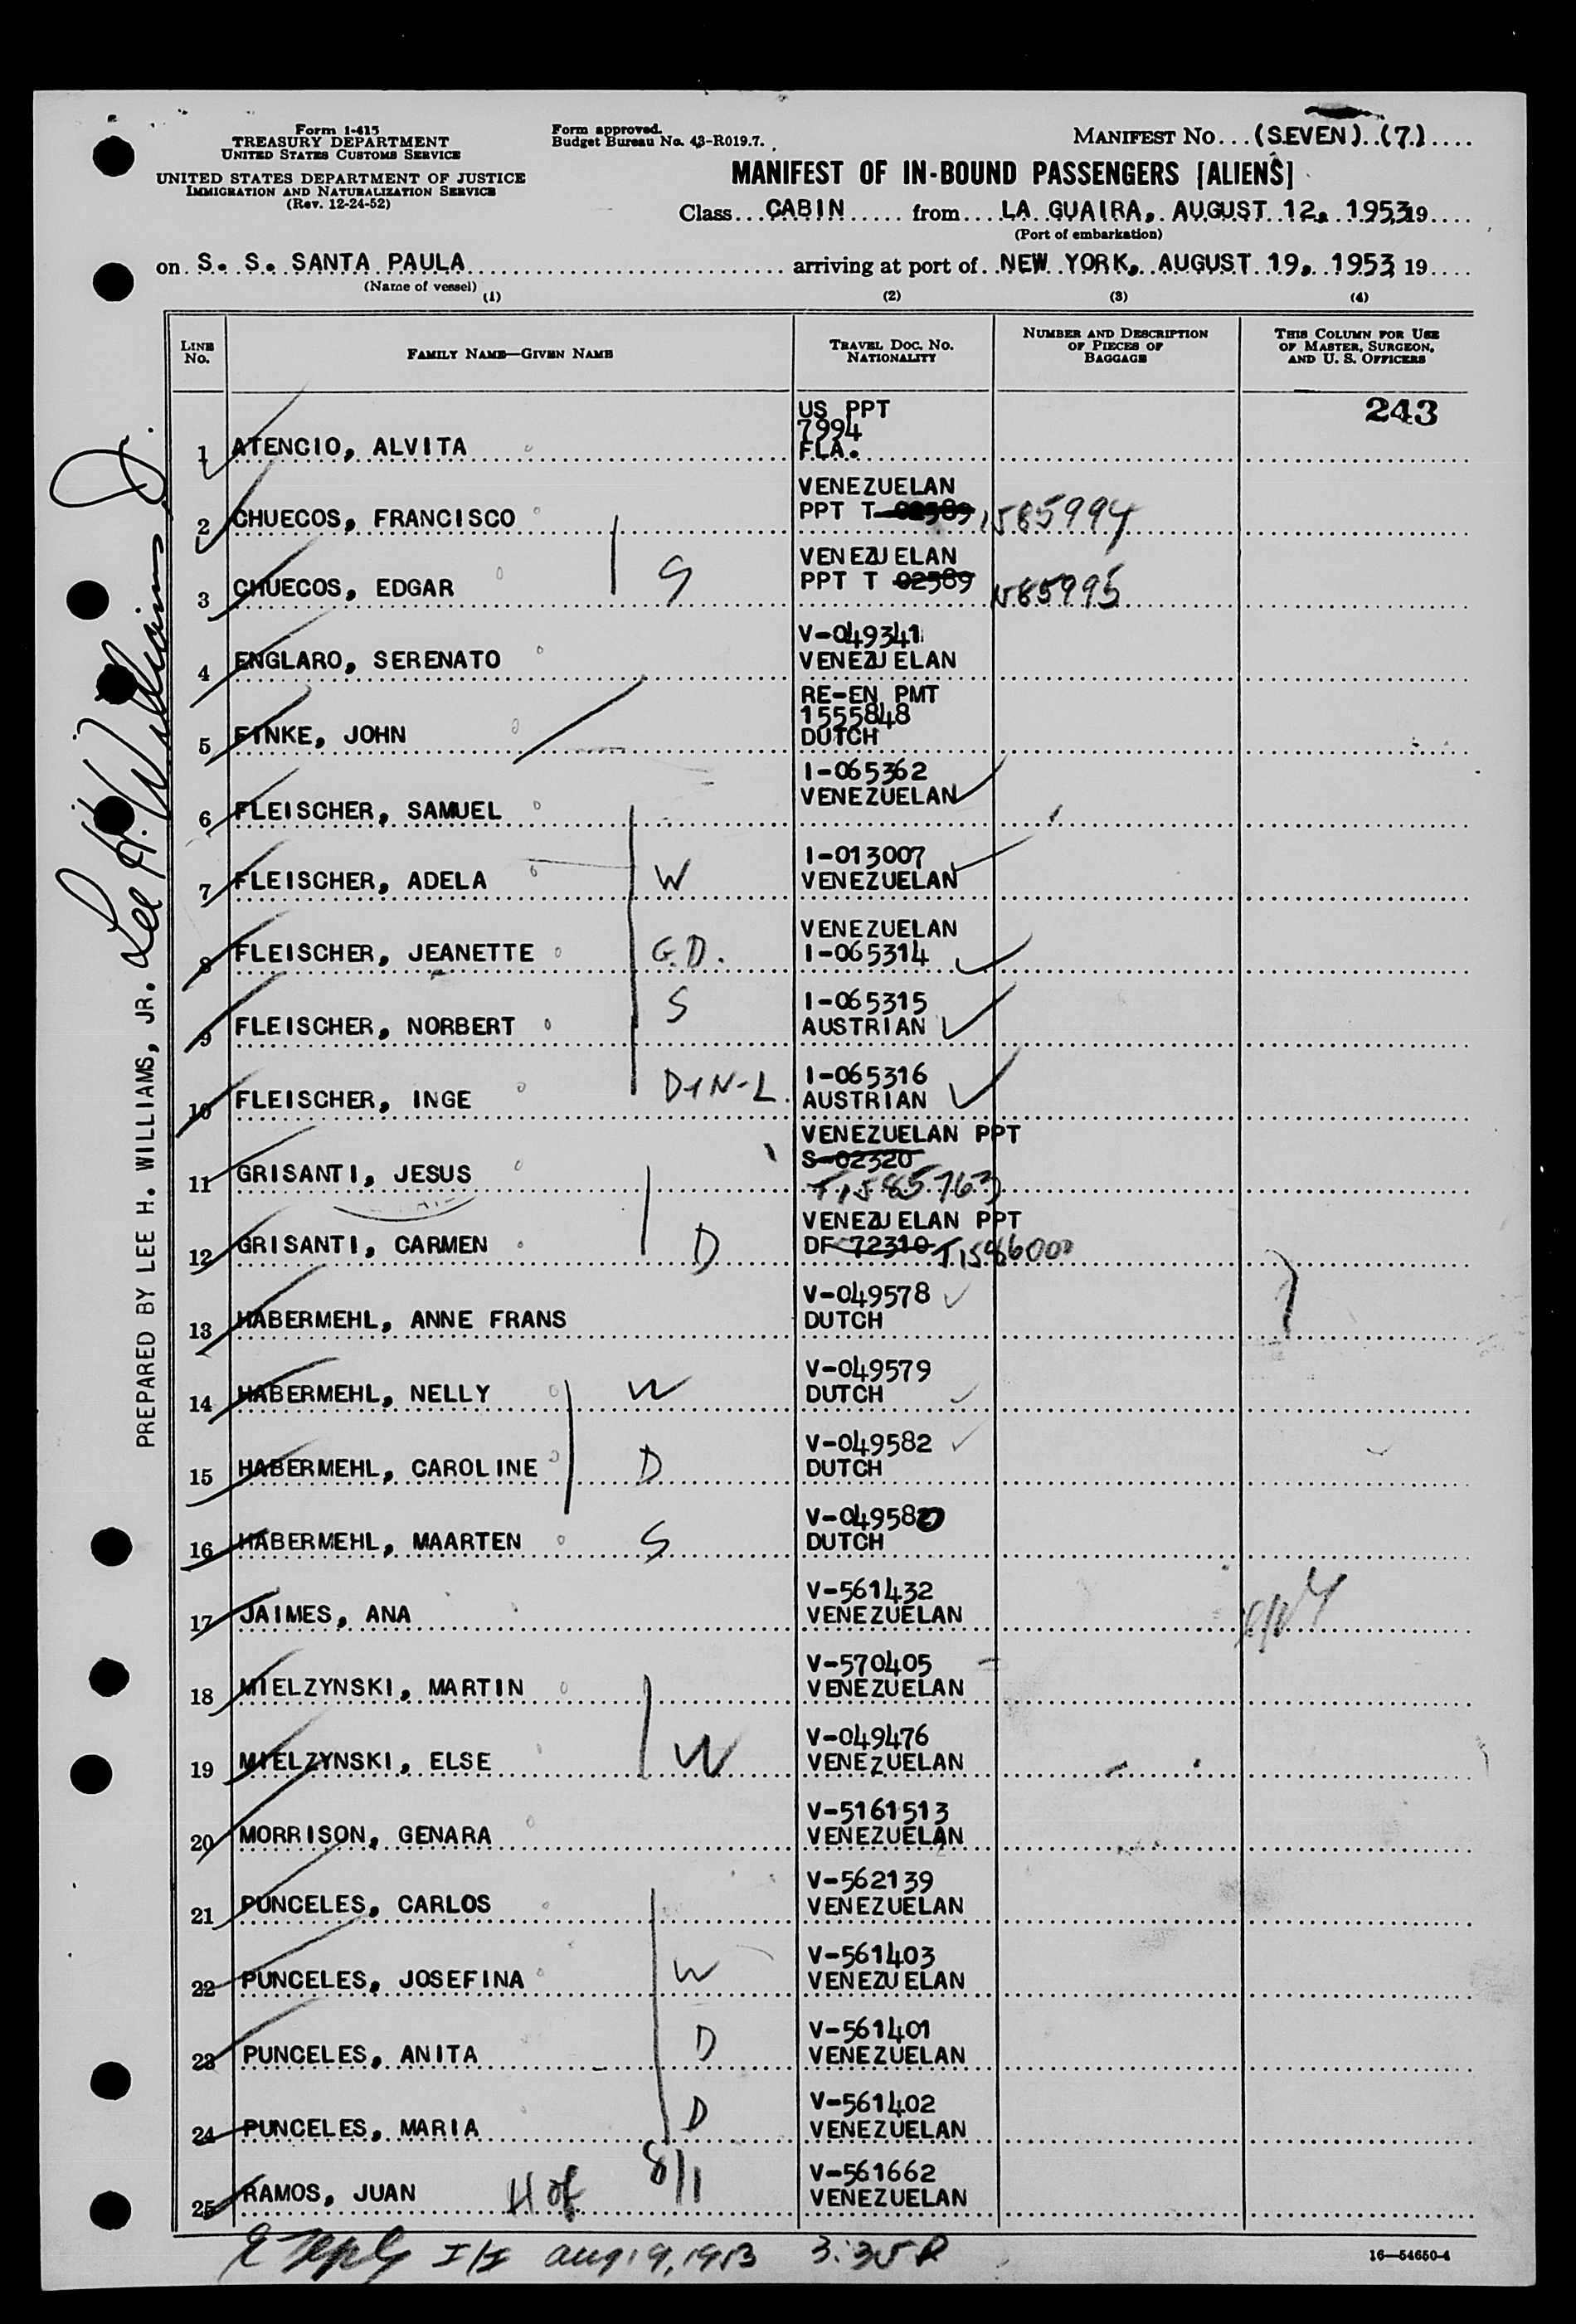 Form I-415
TREASURY DEPARTMENT
UNITED STATES CUSTOMS SERVICE
UNITED STATES DEPARTMENT OF JUSTICE
IMMIGRATION AND NATURALIZATION SERVICE
(Rev. 12-24-52)
Form approved.
Budget Bureau No. 43-R019.7.
MANIFEST NO...(SEVEN)..(7)....
MANIFEST OF IN-BOUND PASSENGERS [ALIENS]
Class...CABIN..... from....LA GUAIRA, AUGUST 12, 1953 19....
(Port of embarkation)
on S. S. SANTA PAULA............ arriving at port of..NEW YORK, AUGUST 19, 1953 19....
(Name of vessel)
(1) (2) (3) (4)
LINE NO.
FAMILY NAME—GIVEN NAME
TRAVEL DOC. NO. NATIONALITY
NUMBER AND DESCRIPTION OF PIECES OF BAGGAGE
THIS COLUMN FOR USE OF MASTER, SURGEON, AND U. S. OFFICERS
243
US PPT
7994
1 ATENCIO, ALVITA FLA.
VENEZUELAN
2 CHUECOS, FRANCISCO PPT T 02589 1585994
VENEZUELAN
3 CHUECOS, EDGAR S PPT T 02589 1585995
V-049341
4 ENGLARO, SERENATO VENEZUELAN
RE-EN PMT
1555848
5 FINKE, JOHN DUTCH
I-065362
VENEZUELAN
6 FLEISCHER, SAMUEL
I-013007
7 FLEISCHER, ADELA W VENEZUELAN
VENEZUELAN
8 FLEISCHER, JEANETTE G.D. I-065314
I-065315
9 FLEISCHER, NORBERT S AUSTRIAN
I-065316
10 FLEISCHER, INGE D-IN-L. AUSTRIAN
VENEZUELAN PPT
S-02320
11 GRISANTI, JESUS T1585763
VENEZUELAN PPT
12 GRISANTI, CARMEN D DF 72310 T1586000
V-049578
13 HABERMEHL, ANNE FRANS DUTCH
V-049579
14 HABERMEHL, NELLY W DUTCH
V-049582
15 HABERMEHL, CAROLINE D DUTCH
V-049580
16 HABERMEHL, MAARTEN S DUTCH
V-561432
17 JAIMES, ANA VENEZUELAN
V-570405
18 MIELZYNSKI, MARTIN VENEZUELAN
V-049476
19 MIELZYNSKI, ELSE W VENEZUELAN
V-5161513
20 MORRISON, GENARA VENEZUELAN
V-562139
21 PUNCELES, CARLOS VENEZUELAN
V-561403
22 PUNCELES, JOSEFINA W VENEZUELAN
V-561401
23 PUNCELES, ANITA D VENEZUELAN
V-561402
24 PUNCELES, MARIA D VENEZUELAN
V-561662
25 RAMOS, JUAN H of 8/1 VENEZUELAN
I/I Aug 19, 1953 3:35 P
16—54650-4
PREPARED BY LEE H. WILLIAMS, JR. Lee H. Williams Jr.